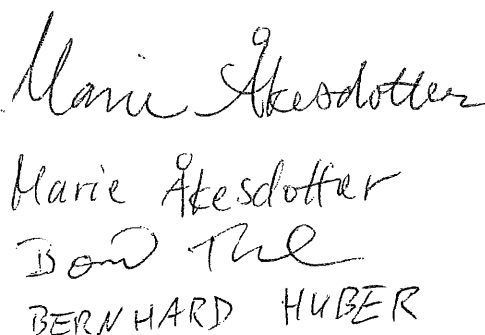 Marie Åkesdotter
Marie Åkesdotter
BERNHARD HUBER